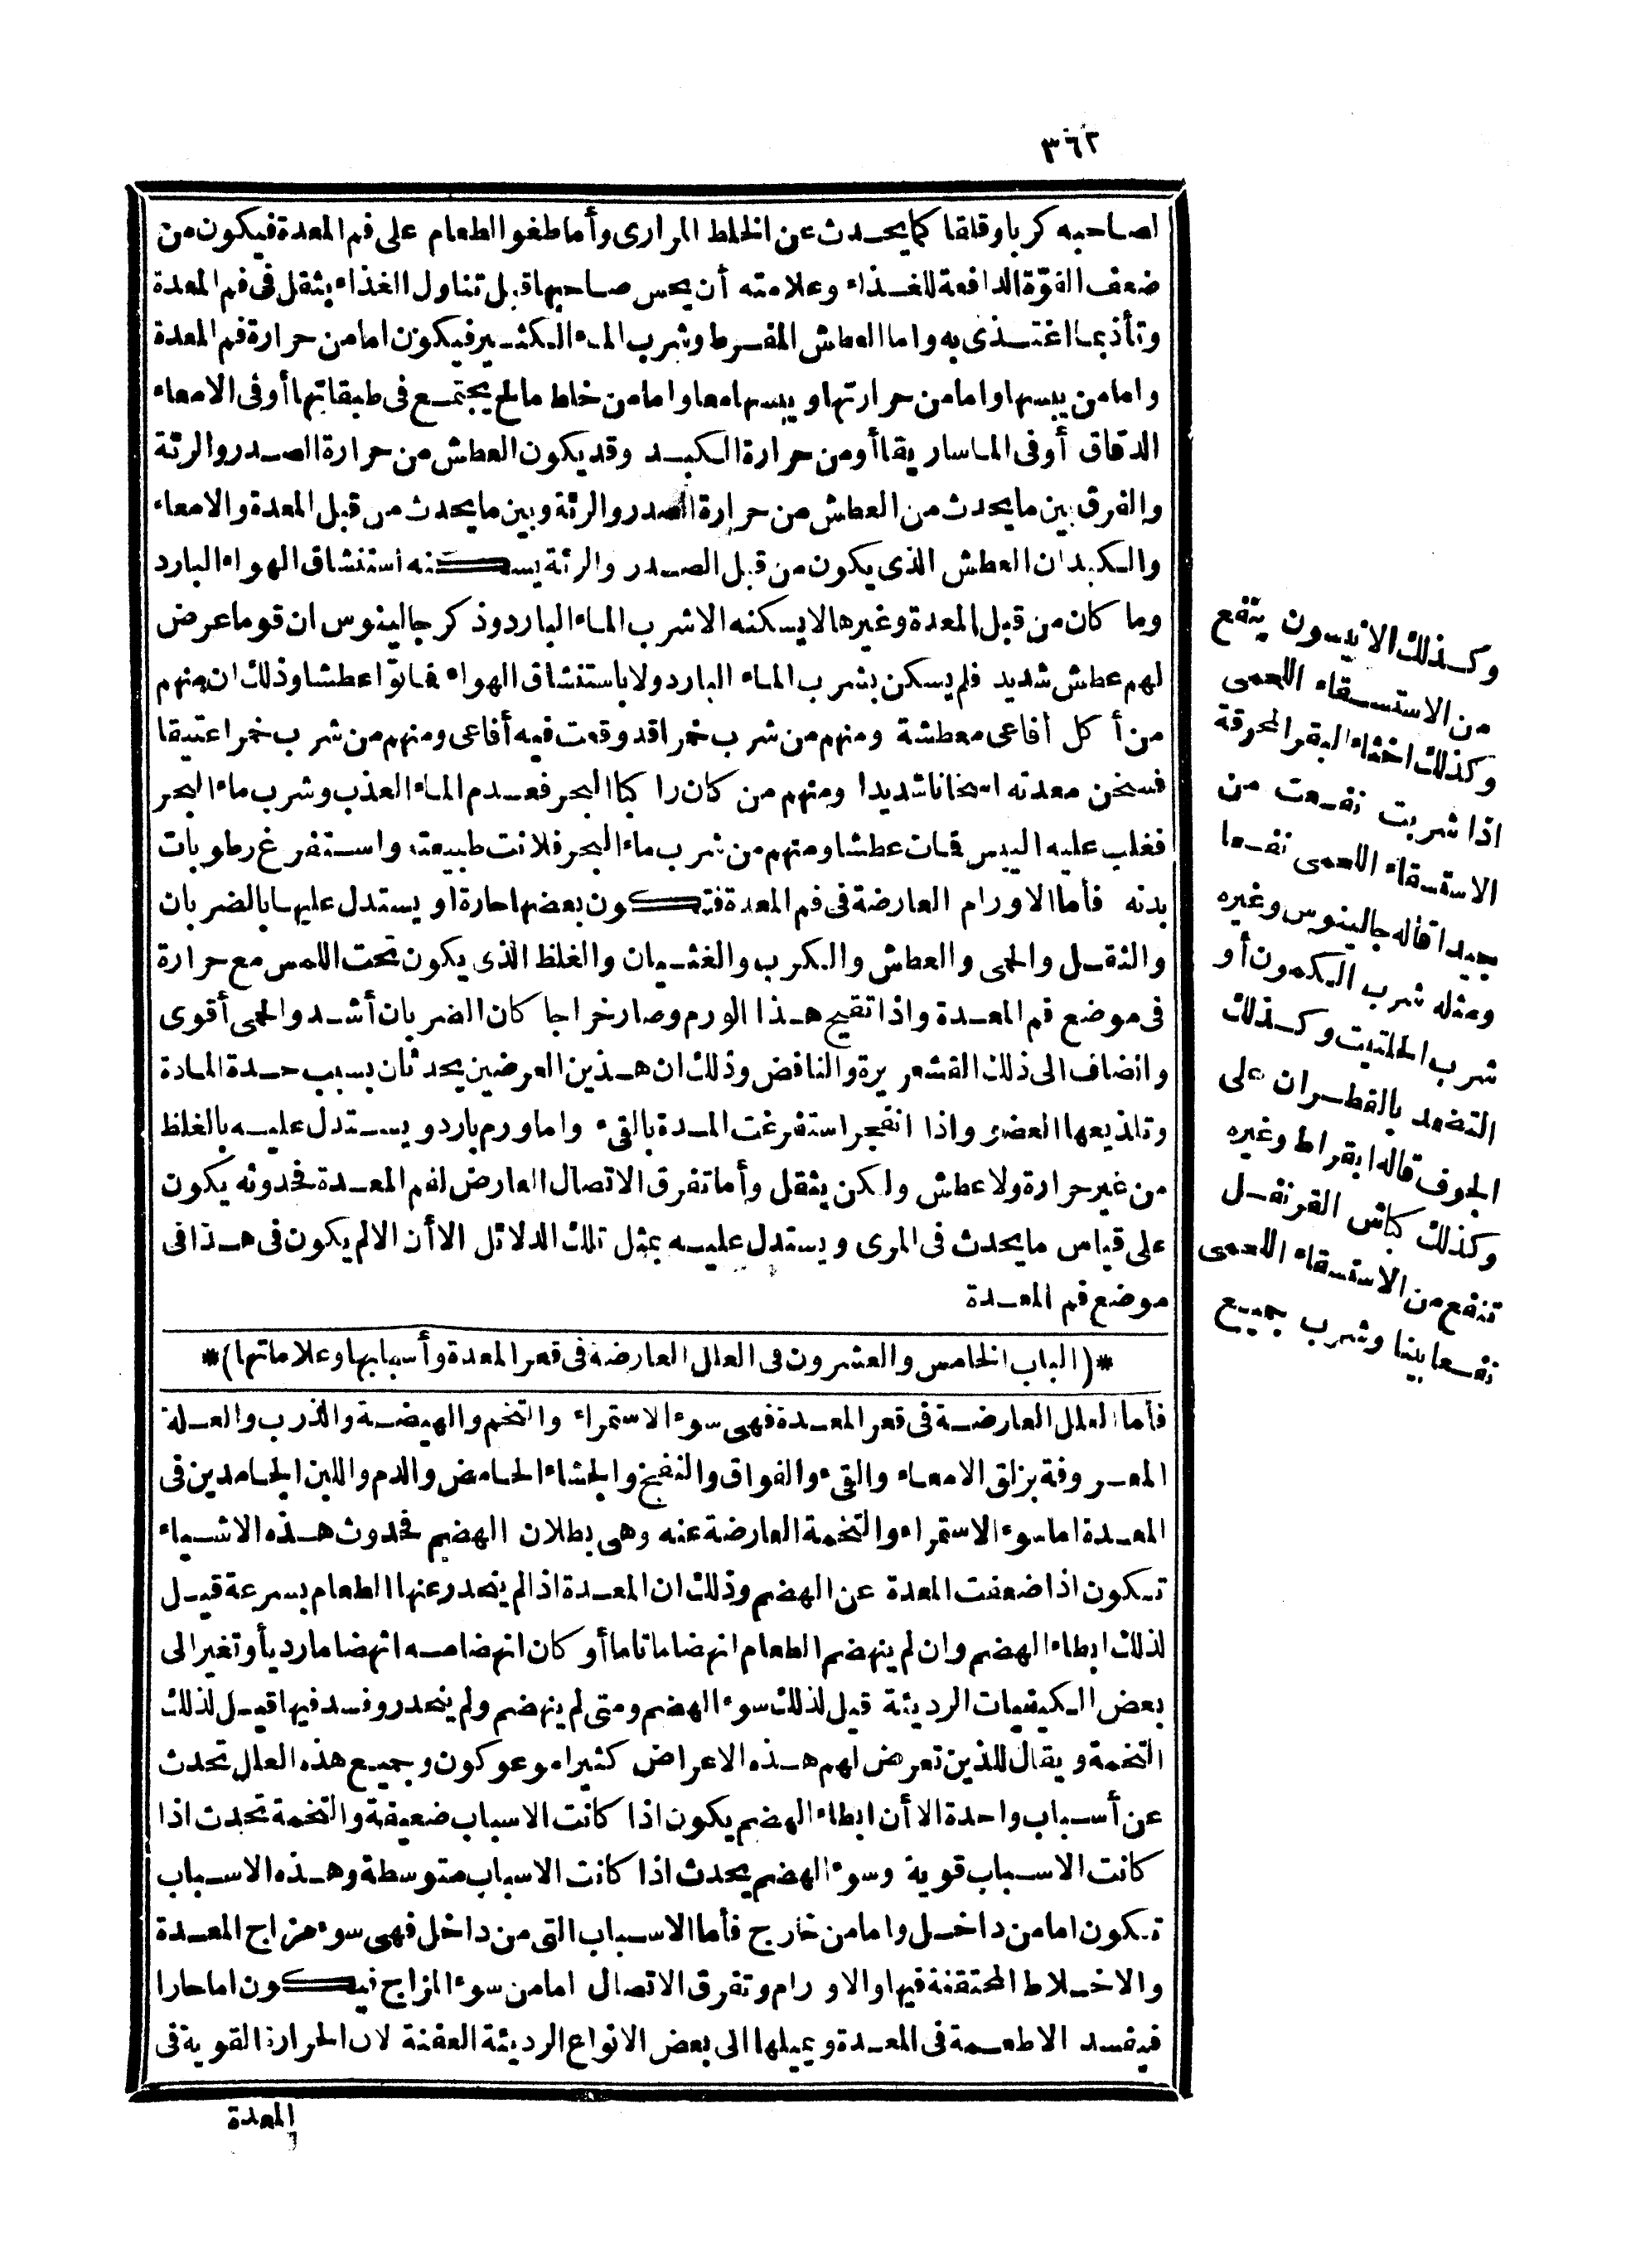 ٣٦٢
لصاحبه كربا وقلقا كما يحدث عن الخلط المراري وأما طفو الطعام على فم المعدة فيكون من
ضعف القوّة الدافعة للغذاء وعلامته أن يحس صاحبها قبل تناول الغذاء بثقل فى فم المعدة
وتأذ بما اغتذى به واما العطش المفرط وشرب الماء الكثير فيكون امامن حرارة فم المعدة
وامامن يبسها وامامن حرارتها ويبسها معا وامامن خلط مالح يجتمع فى طبقاتها أوفى الامعاء
الدقاق أوفى الماساريقا أومن حرارة الكبد وقد يكون العطش من حرارة الصدر والرئة
والفرق بين ما يحدث من العطش من حرارة الصدر والرئة وبين ما يحدث من قبل المعدة والامعاء
والكبد ان العطش الذى يكون من قبل الصدر والرئة يسكنه استنشاق الهواء البارد
وما كان من قبل المعدة وغيرها لا يسكنه الا شرب الماء البارد وذكر جالينوس ان قوما عرض
لهم عطش شديد فلم يسكن بشرب الماء البارد ولا باستنشاق الهواء فماتوا عطشا وذلك ان منهم
من أكل أفاعى معطشة ومنهم من شرب خمرا قد وقعت فيه أفاعى ومنهم من شرب خمرا عتيقا
فسخن معدته اسخانا شديدا ومنهم من كان راكبا البحر فعدم الماء العذب وشرب ماء البحر
فغلب عليه اليبس فمات عطشا ومنهم من شرب ماء البحر فلانت طبيعته واستفرغ رطوبات
بدنه فأما الاورام العارضة فى فم المعدة فتكون بعضها حارة او يستدل عليها بالضربان
والثقل والحمى والعطش والكرب والغثيان والغلظ الذى يكون تحت اللمس مع حرارة
فى موضع فم المعدة واذا تقيح هذا الورم وصار خراجا كان الضربان أشد والحمى أقوى
وانضاف الى ذلك القشعريرة والنافض وذلك ان هذين العرضين يحدثان بسبب حدة المادة
وتلذيعها العضو واذا انفجر استفرغت المدة بالقىء واما ورم بارد ويستدل عليه بالغلظ
من غير حرارة ولا عطش ولكن بثقل وأما تفرق الاتصال العارض لفم المعدة فحدوثه يكون
على قياس ما يحدث فى المرى ويستدل عليه بمثل تلك الدلائل الا أن الالم يكون فى هذا فى
موضع فم المعدة
*(الباب الخامس والعشرون فى العلل العارضة فى قعر المعدة وأسبابها وعلاماتها)*
فأما العلل العارضة فى قعر المعدة فهى سوء الاستمراء والتخم والهيضة والذرب والعلة
المعروفة بزلق الامعاء والقىء والفواق والنفخ والجشاء الحامض والدم واللبن الجامدين فى
المعدة اما سوء الاستمراء والتخمة العارضة عنه وهى بطلان الهضم فحدوث هذه الاشياء
تكون اذا ضعفت المعدة عن الهضم وذلك ان المعدة اذا لم ينحدر عنها الطعام بسرعة قيل
لذلك ابطاء الهضم وان لم ينهضم الطعام انهضاما تاما أو كان انهضامه انهضاما رديأ وتغير الى
بعض الكيفيات الرديئة قيل لذلك سوء الهضم ومتى لم ينهضم ولم ينحدر وفسد فيها قيل لذلك
التخمة ويقال للذين تعرض لهم هذه الاعراض كثيرا موعوكون وجميع هذه العلل تحدث
عن أسباب واحدة الا أن ابطاء الهضم يكون اذا كانت الاسباب ضعيفة والتخمة تحدث اذا
كانت الاسباب قوية وسوء الهضم يحدث اذا كانت الاسباب متوسطة وهذه الاسباب
تكون امامن داخل وامامن خارج فأما الاسباب التى من داخل فهى سوء مزاج المعدة
والاخلاط المحتقنة فيها والاورام وتفرق الاتصال امامن سوء المزاج فيكون اما حارا
فيفسد الاطعمة فى المعدة ويميلها الى بعض الانواع الرديئة العفنة لان الحرارة القوية فى
المعدة
وكذلك الانيسون ينفع
من الاستسقاء اللحمى
وكذلك اخثاء البقر المحرقة
اذا شربت نفعت من
الاستسقاء اللحمى نفعا
جيدا قاله جالينوس وغيره
ومثله شرب الكمون أو
شرب الحلتيت وكذلك
التضمد بالقطران على
الجوف قاله ابقراط وغيره
وكذلك كباش القرنفل
تنفع من الاستسقاء اللحمى
نفعا بينا وشرب جميع